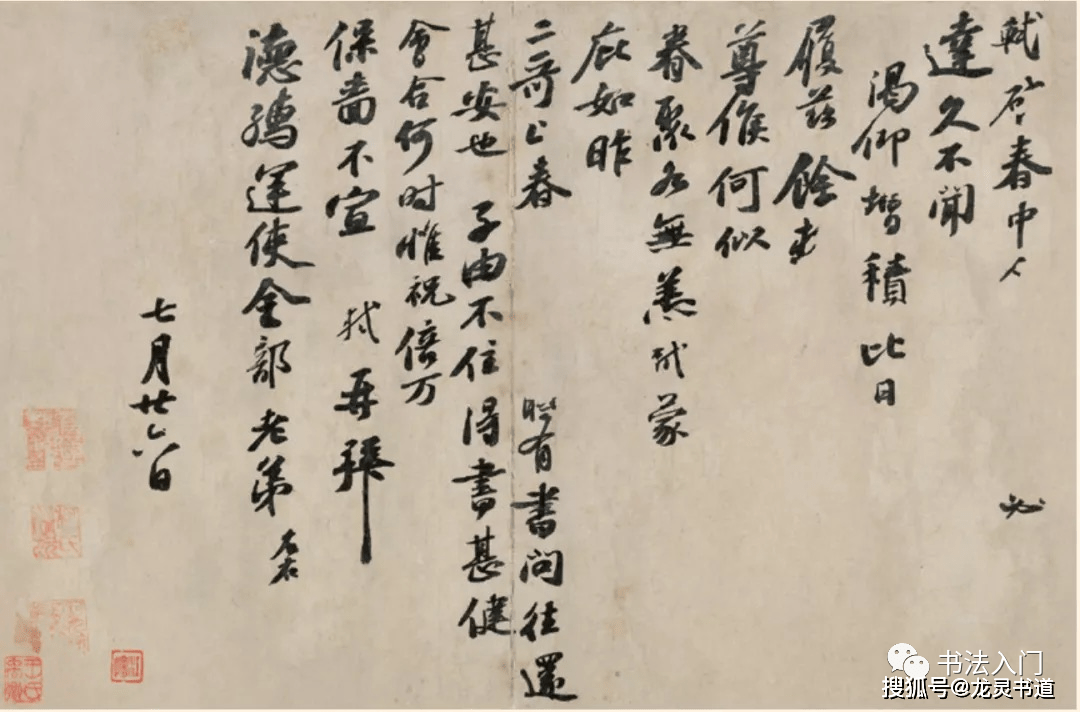 軾啓春中人必
達久不聞
渴仰增積比日
履兹餘
尊候何似
眷聚各無恙軾蒙
庇如昨
二哥上春時有書問往還
甚安也子由不住得書甚健
會合何时惟祝倍万
保嗇不宣軾再拜
德孺運使金部老弟左右
七月廿六日
书法入门
搜狐号@龙灵书道